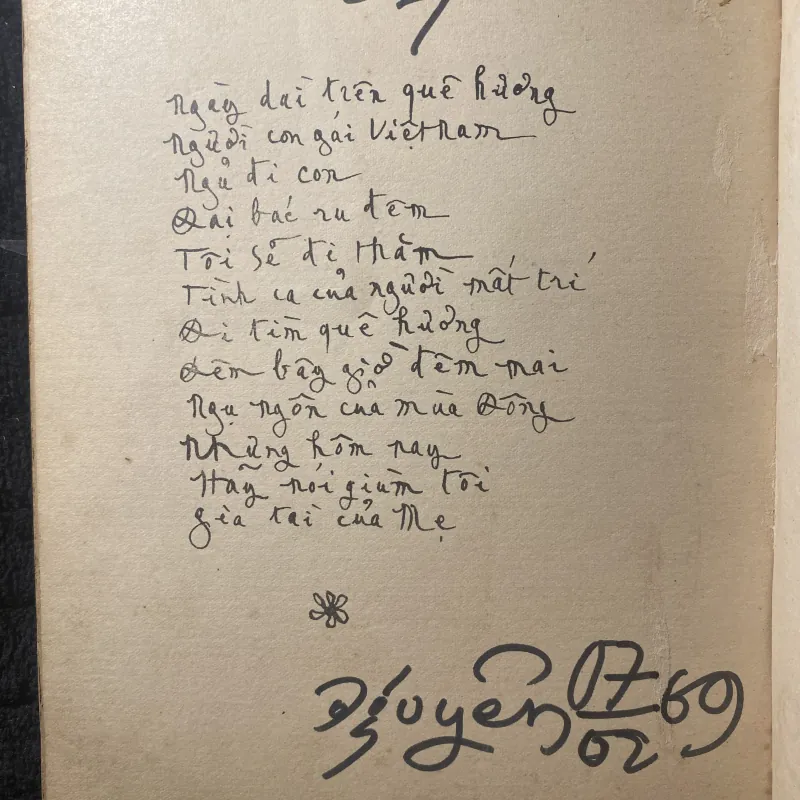 Ngày dài trên quê hương
Người con gái Việt Nam
Ngủ đi con
Đại bác ru đêm
Tôi sẽ đi thăm
Tình ca của người mất trí
Đi tìm quê hương
Đêm bây giờ đêm mai
Ngụ ngôn của mùa Đông
Những hôm nay
Hãy nói giùm tôi
gia tài của Mẹ
17/02 69